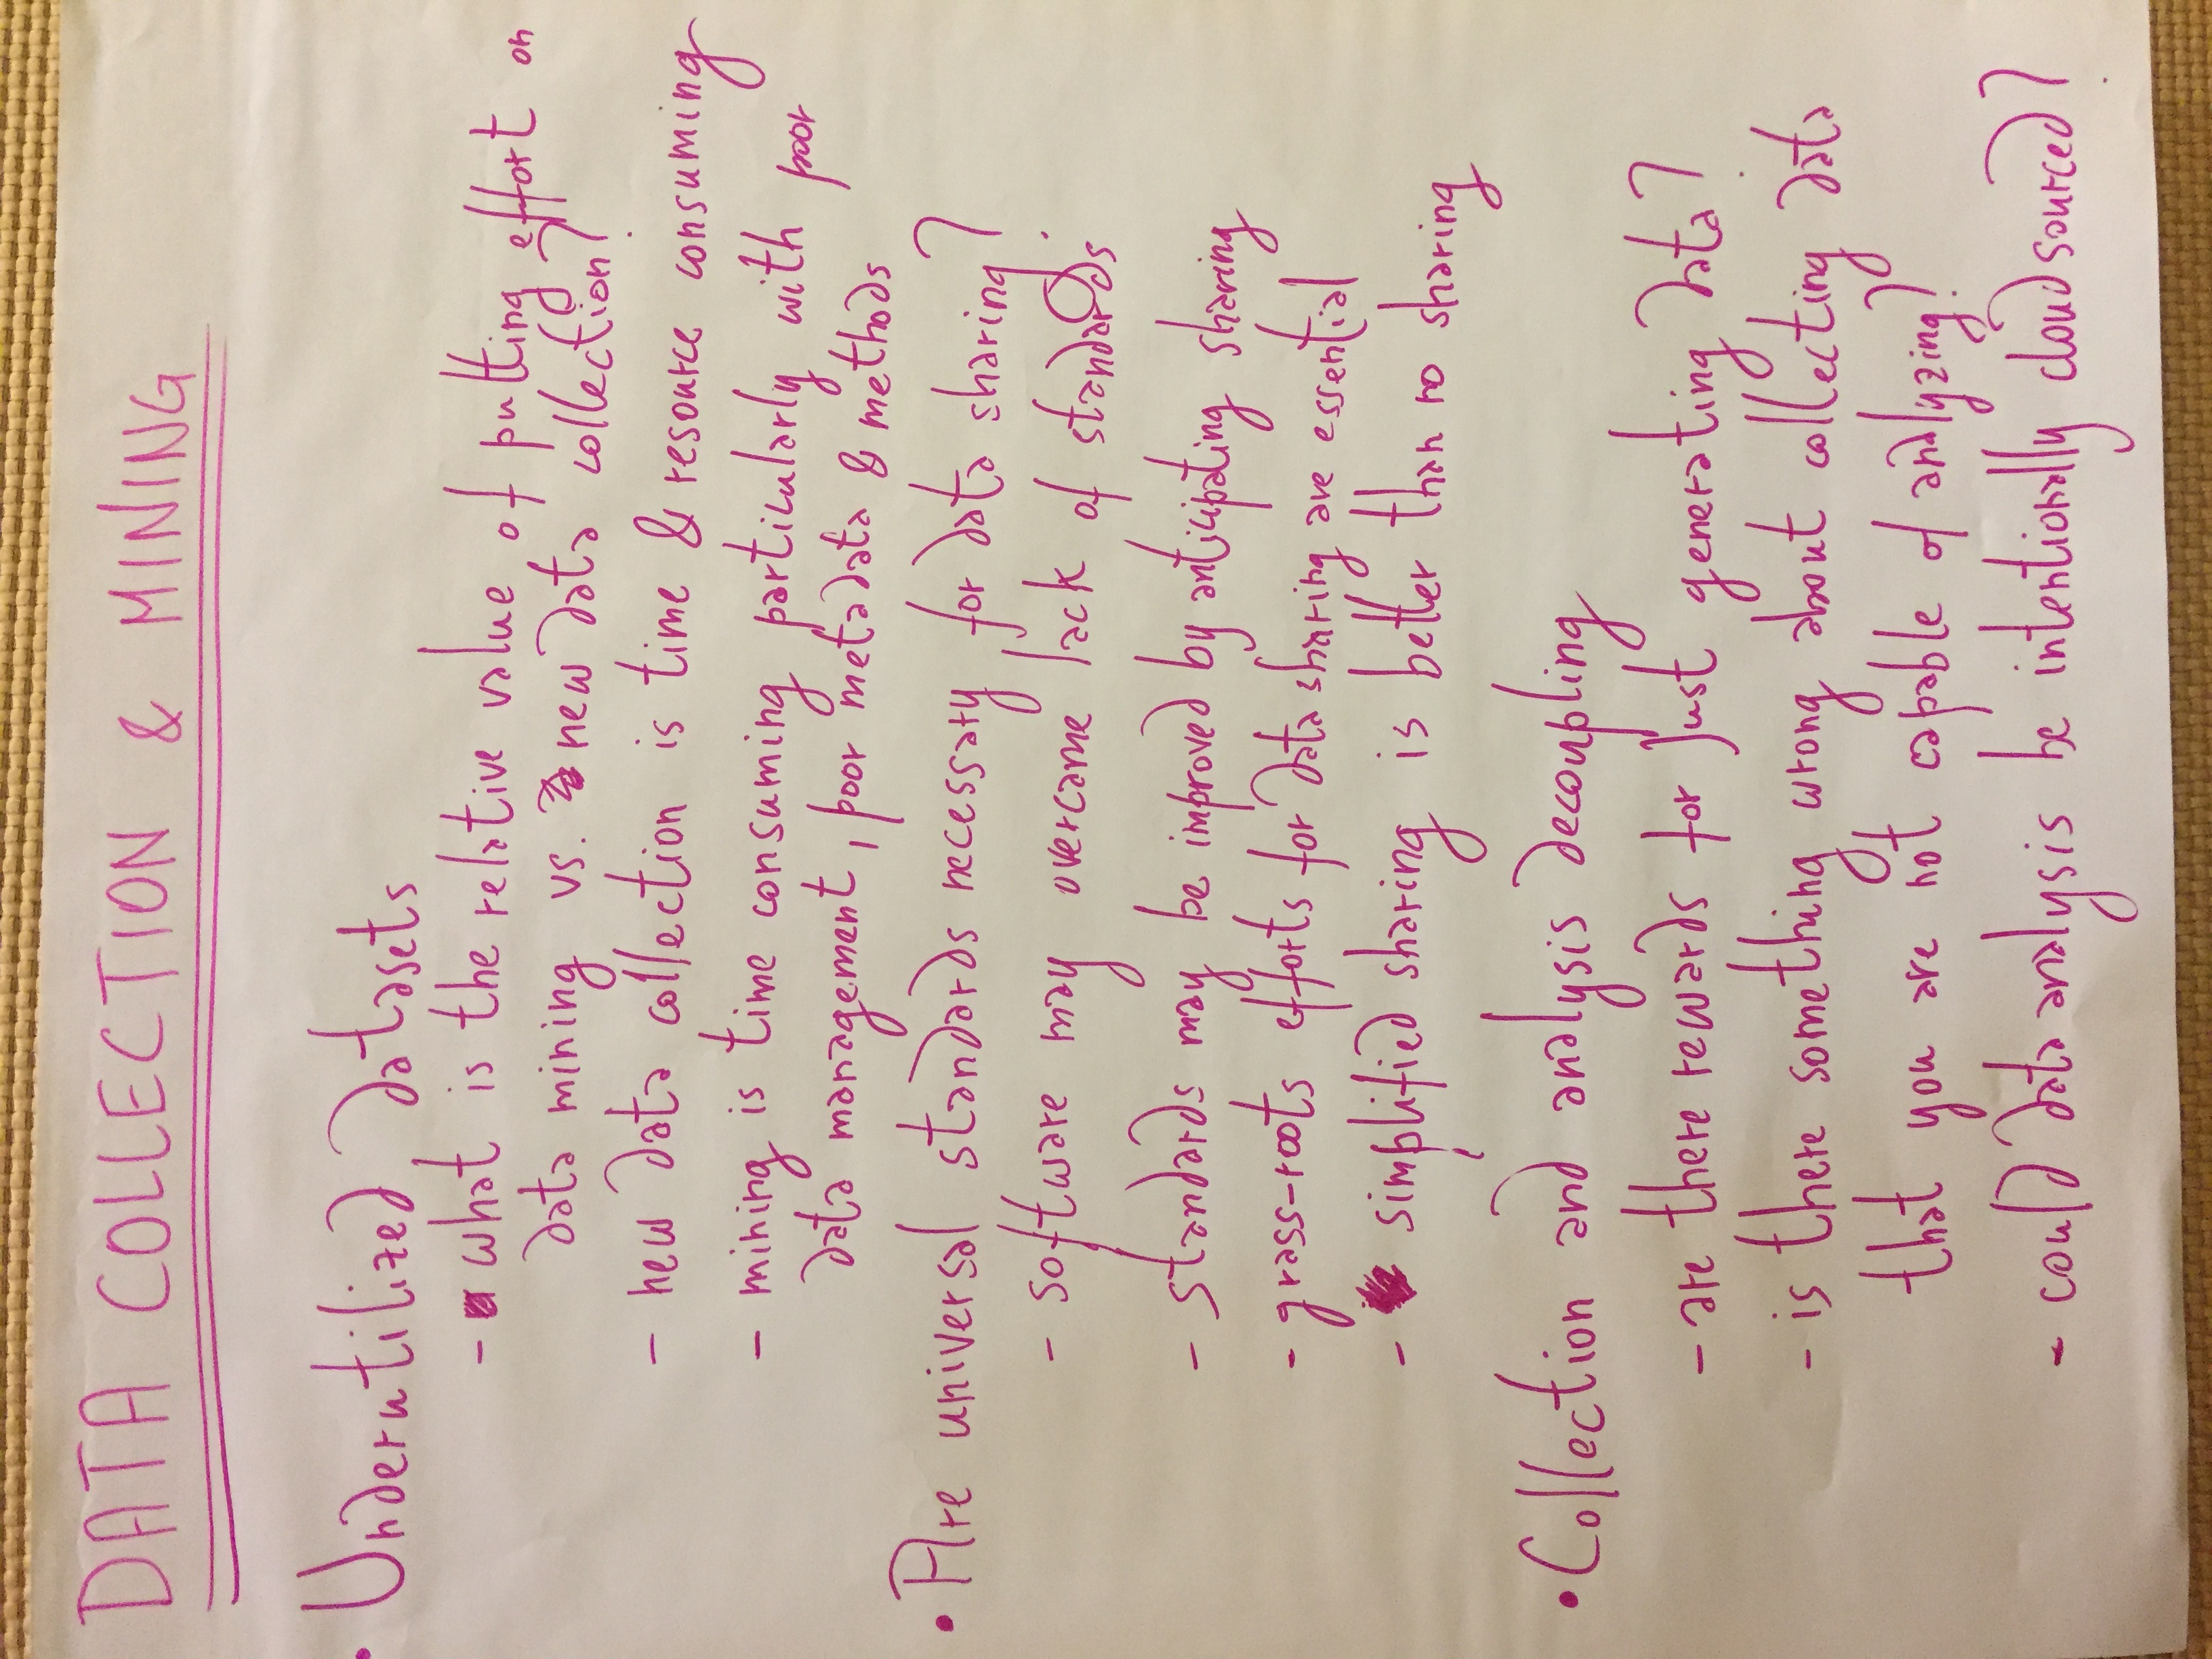 DATA COLLECTION & MINING
• Underutilized datasets
- what is the relative value of putting effort on
data mining vs. new data collection?
- new data collection is time & resource consuming
- mining is time consuming particularly with poor
data management, poor metadata & methods
• Are universal standards necessary for data sharing?
- software may overcame lack of standards
- standards may be improved by anticipating sharing
- grass-roots efforts for data sharing are essential
- simplified sharing is better than no sharing
• Collection and analysis decoupling
- are there rewards for just generating data?
- is there something wrong about collecting data
that you are not capable of analyzing?
- could data analysis be intentionally cloudsourced?